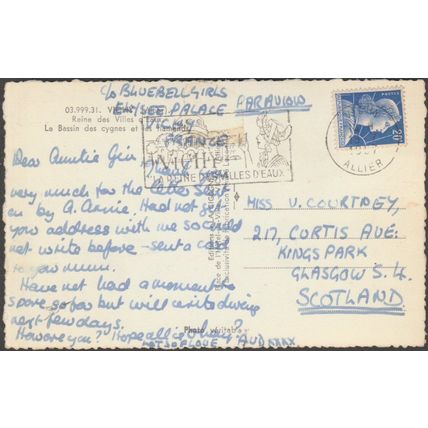 c/o BLUEBELL GIRLS
ELYSEE PALACE PAR AVION
VICHY
FRANCE
03.999.31. VICHY
Reine des Villes d'Eaux
Le Bassin des cygnes et
POSTES
20F
ALLIER
VICHY
LA REINE DES VILLES D'EAUX
Dear Auntie Gin,
very much for the letter sent
on by A. Annie. Had not got
your address with me so could
not write before - sent a card
to your mum.
Have not had a moment to
spare so far but will write during
next few days.
How are you? Hope all is okay?
LOTS OF LOVE AUD XXXX
Photo véritable
MISS V. COURTNEY,
217, CURTIS AVE.
KINGS PARK
GLASGOW S.4.
SCOTLAND